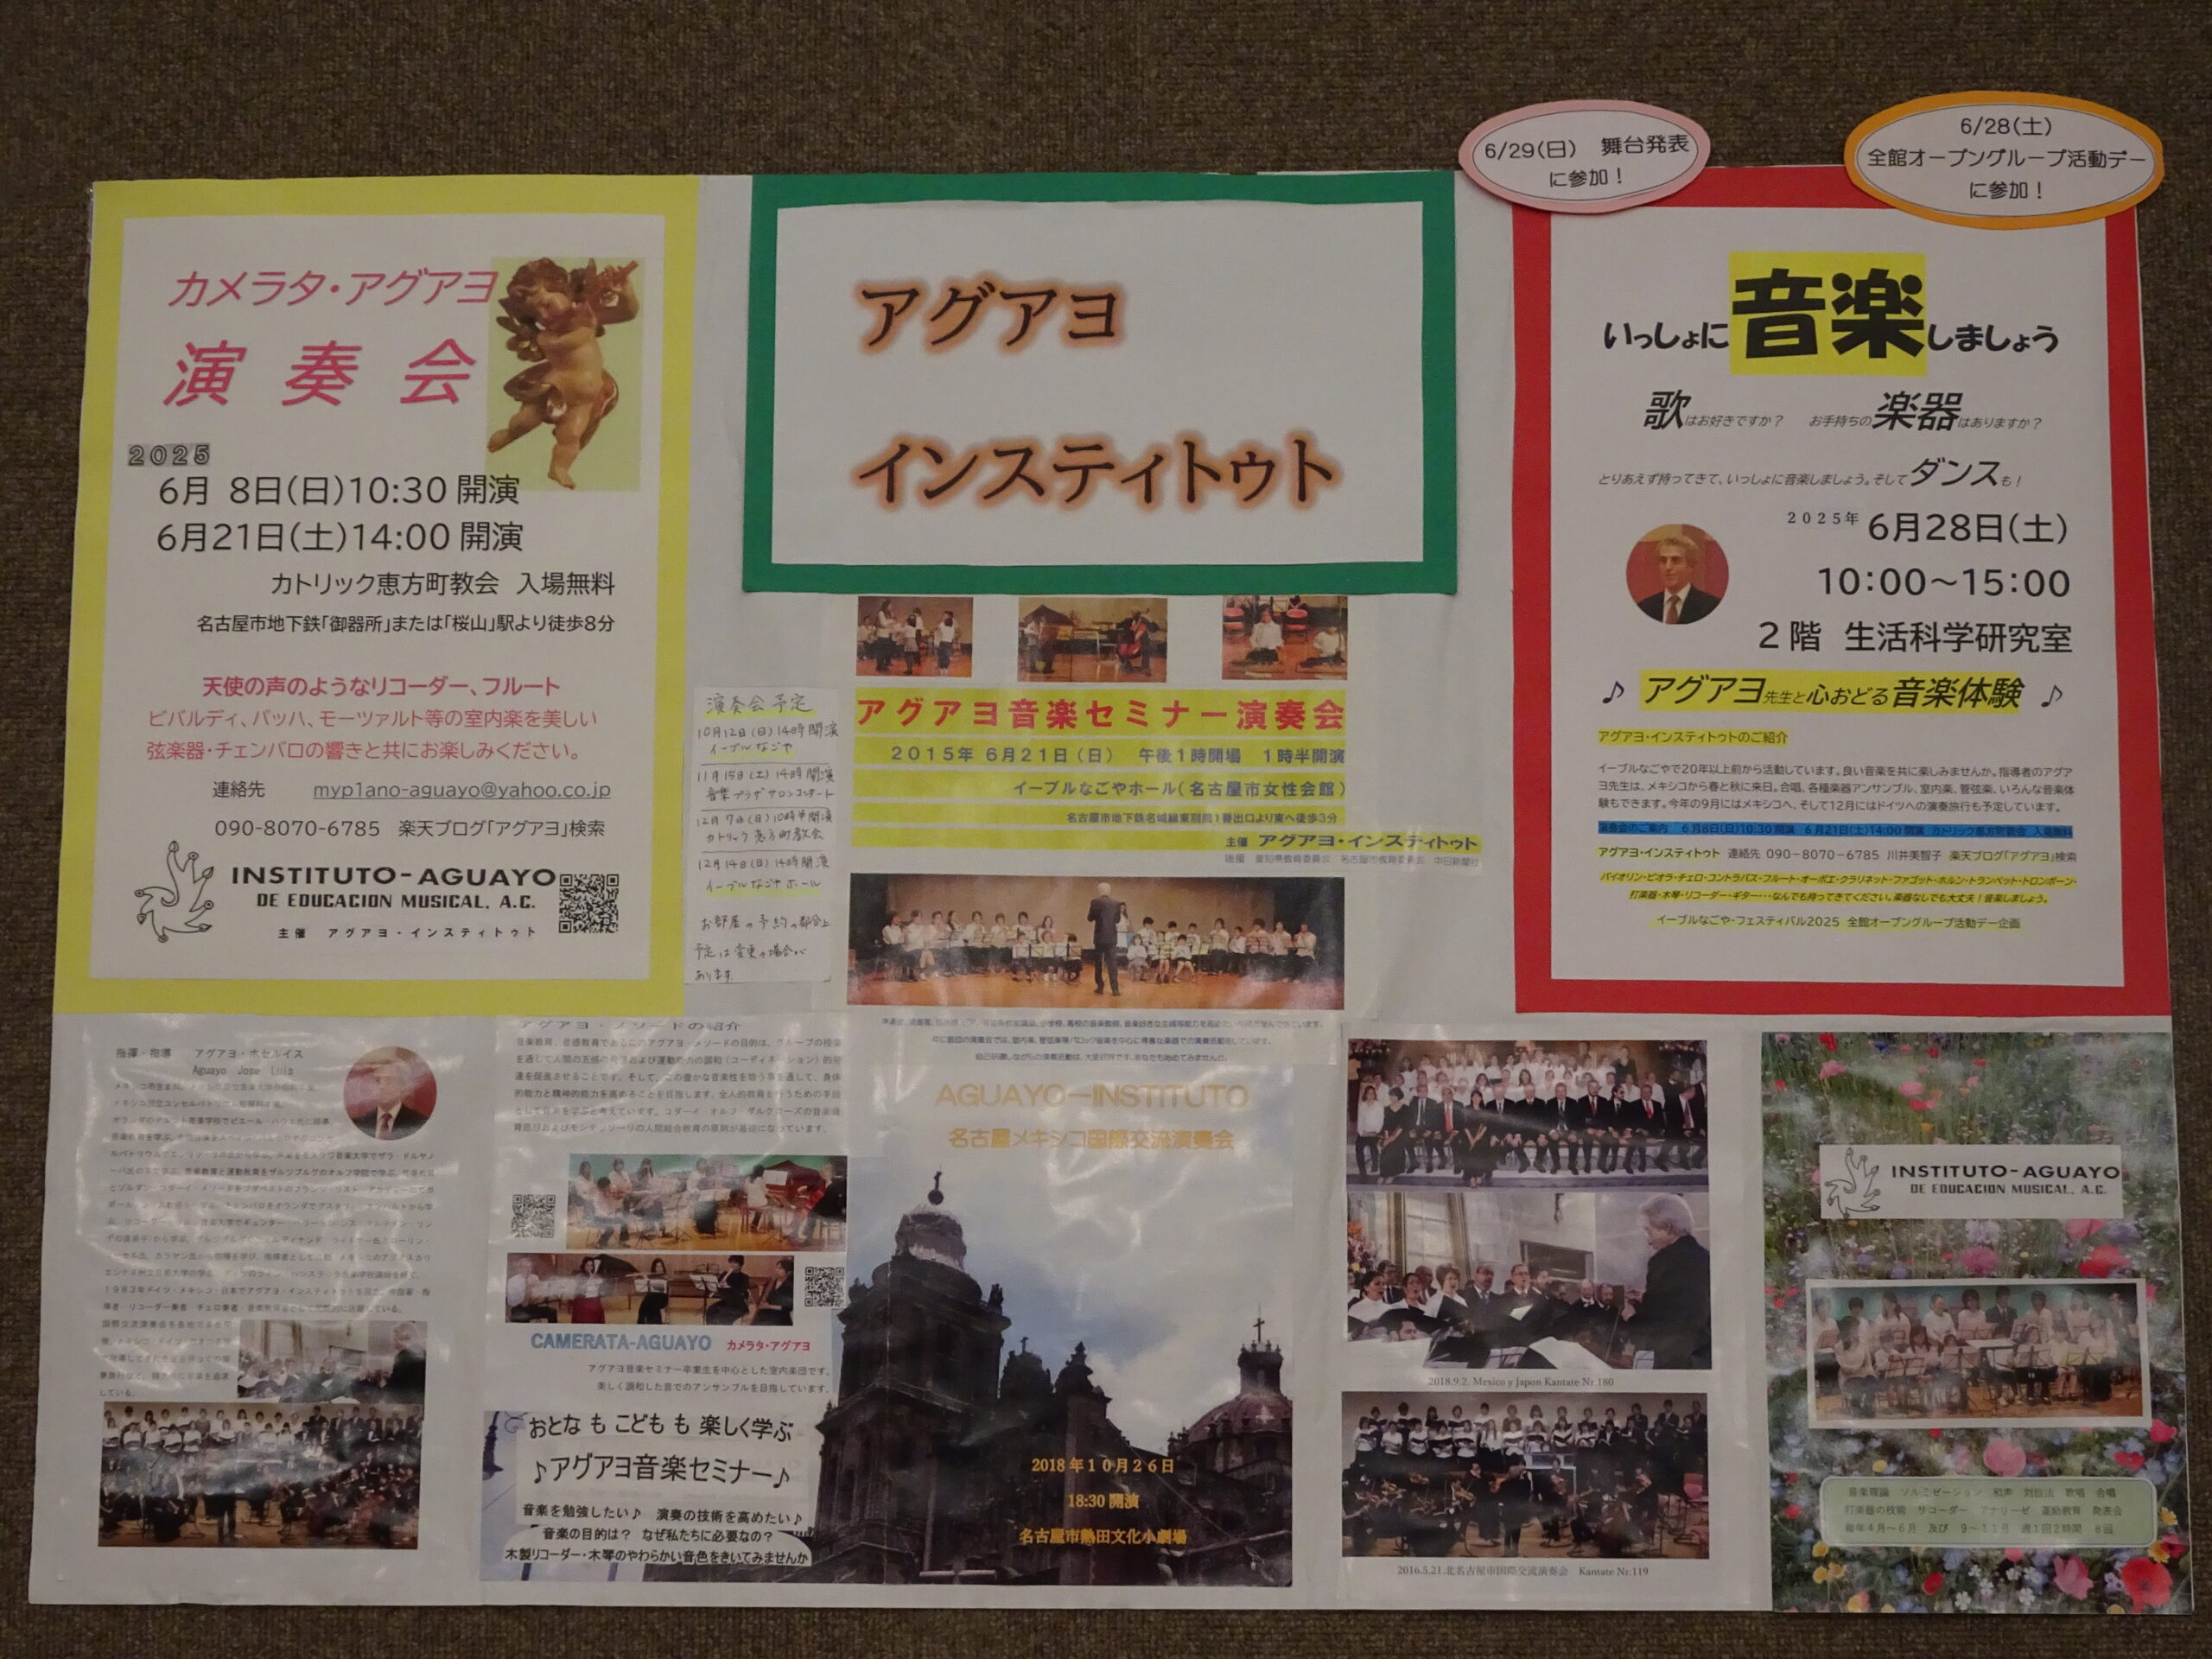 6/29(日) 舞台発表
に参加！
6/28(土)
全館オープングループ活動デー
に参加！
カメラタ・アグアヨ
演奏会
2025
6月 8日(日)10:30 開演
6月21日(土)14:00 開演
カトリック恵方町教会 入場無料
名古屋市地下鉄「御器所」または「桜山」駅より徒歩8分
天使の声のようなリコーダー、フルート
ビバルディ、バッハ、モーツァルト等の室内楽を美しい
弦楽器・チェンバロの響きと共にお楽しみください。
連絡先 myp1ano-aguayo@yahoo.co.jp
090-8070-6785 楽天ブログ「アグアヨ」検索
INSTITUTO-AGUAYO
DE EDUCACION MUSICAL, A.C.
主催 アグアヨ・インスティトゥト
アグアヨ
インスティトゥト
演奏会予定
10月12日(日)14時開演
イーブルなごや
11月15日(土)14時開演
音楽プラザサロンコンサート
12月7日(日)10時半開演
カトリック恵方町教会
12月14日(日)14時開演
イーブルなごやホール
お部屋の予約の都合上
予定は変更の場合が
あります
アグアヨ音楽セミナー演奏会
2015年 6月21日(日) 午後1時開場 1時半開演
イーブルなごやホール(名古屋市女性会館)
名古屋市地下鉄名城線東別院1番出口より東へ徒歩3分
主催 アグアヨ・インスティトゥト
後援 愛知県教育委員会 名古屋市教育委員会 中日新聞社
いっしょに音楽しましょう
歌はお好きですか？ お手持ちの楽器はありますか？
とりあえず持ってきて、いっしょに音楽しましょう。そしてダンスも！
2025年 6月28日(土)
10:00～15:00
2階 生活科学研究室
♪ アグアヨ先生と心おどる音楽体験 ♪
アグアヨ・インスティトゥトのご紹介
イーブルなごやで20年以上前から活動しています。良い音楽を共に楽しみませんか。指導者のアグア
ヨ先生は、メキシコから春と秋に来日。合唱、各種楽器アンサンブル、室内楽、管弦楽、いろんな音楽体
験もできます。今年の9月にはメキシコへ、そして12月にはドイツへの演奏旅行も予定しています。
演奏会のご案内 6月8日(日)10:30開演 6月21日(土)14:00開演 カトリック恵方町教会 入場無料
アグアヨ・インスティトゥト 連絡先 090-8070-6785 川井美智子 楽天ブログ「アグアヨ」検索
バイオリン・ビオラ・チェロ・コントラバス・フルート・オーボエ・クラリネット・ファゴット・ホルン・トランペット・トロンボーン・
打楽器・木琴・リコーダー・ギター・・・なんでも持ってきてください。楽器なしでも大丈夫！音楽しましょう。
イーブルなごや・フェスティバル2025 全館オープングループ活動デー企画
指揮・指導 アグアヨ・ホセルイス
Aguayo Jose Luis
アグアヨ・メソードの紹介
CAMERATA-AGUAYO カメラタ・アグアヨ
アグアヨ音楽セミナー卒業生を中心とした室内楽団です。
美しく調和した音でのアンサンブルを目指しています。
おとな も こども も 楽しく学ぶ
♪アグアヨ音楽セミナー♪
音楽を勉強したい♪ 演奏の技術を高めたい♪
音楽の目的は？ なぜ私たちに必要なの？
木製リコーダー・木琴のやわらかい音色をきいてみませんか
AGUAYO-INSTITUTO
名古屋メキシコ国際交流演奏会
2018年10月26日
18:30 開演
名古屋市熱田文化小劇場
2018.9.2. Mexico y Japon Kantate Nr.180
2016.5.21.北名古屋市国際交流演奏会 Kantate Nr.119
INSTITUTO-AGUAYO
DE EDUCACION MUSICAL, A.C.
音楽理論 ソルミゼーション 和声 対位法 歌唱 合唱
打楽器の技術 リコーダー アナリーゼ 運動教育 発表会
毎年4月～6月 及び 9～11月 週1回2時間 8回